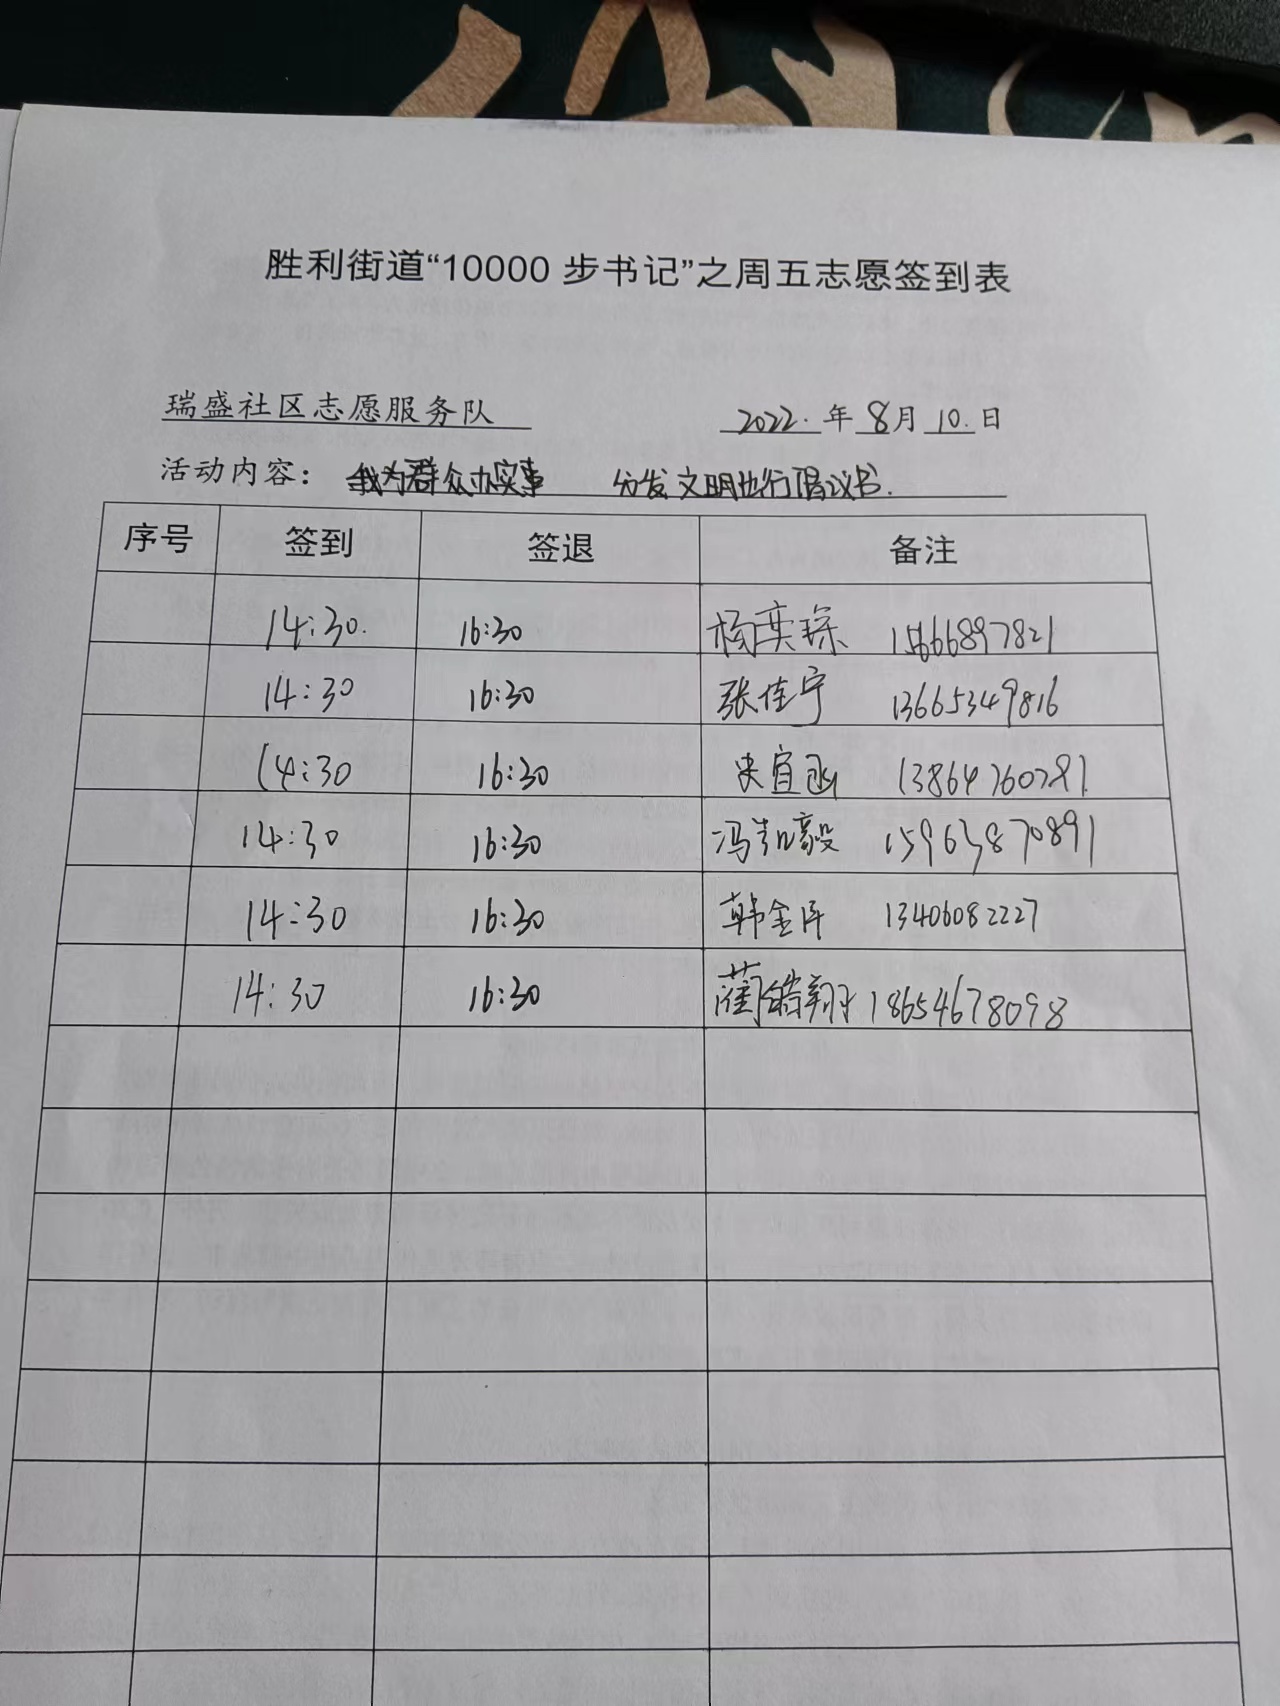 胜利街道“10000 步书记”之周五志愿签到表
瑞盛社区志愿服务队 2022. 年 8月 10. 日
活动内容： 我为群众办实事 分发文明出行倡议书.
序号 签到 签退 备注
14:30. 16:30 杨奕琛 15666897821
14:30 16:30 张佳宁 13665349816
14:30 16:30 宜函 13864760281
14:30 16:30 冯毅 15963870891
14:30 16:30 韩金 13406082227
14:30 16:30 蔺皓翔 18654678098